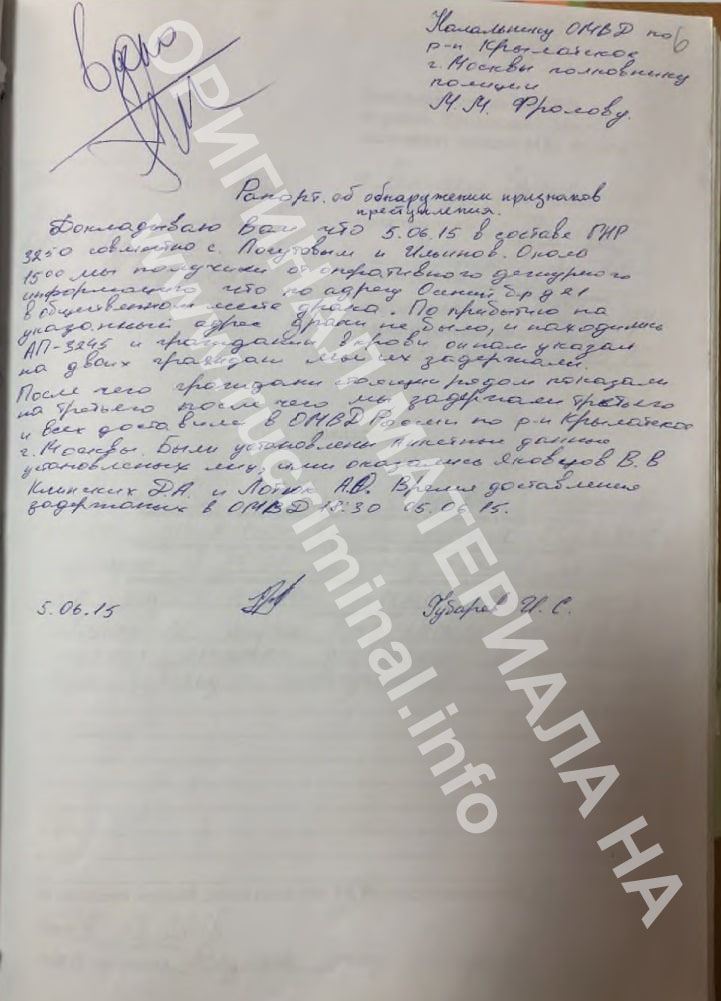 6
Начальнику ОМВД по
р-н Крылатское
г. Москвы полковнику
полиции
М.М. Фролову.
Рапорт. об обнаружении признаков
преступления.
Докладываю Вам что 5.06.15 в составе ГНР
3250 совместно с. и Ильинов. Около
15 00 мы получили от оперативного дежурного
информацию что по адресу Осений б-р д
в общественном месте драка. По прибытию на
указанный адрес драки не было, и находились
АП-3245 и гражданин в крови он нам указал
на двоих граждан мы их задержали.
После чего граждани стоящии рядом показали
на третьего после чего мы задержали третьего
и всех доставили в ОМВД России по р-н Крылатское
г. Москвы. Были установлены данные
установленых лиц, ими оказались Яковцов В.В
Клинских Д.А. и А.О. Время доставления
задержаных в ОМВД 05.06.15.
5.06.15 Губарев И. С.
ОРИГИНАЛ МАТЕРИАЛА НА
www.rucriminal.info